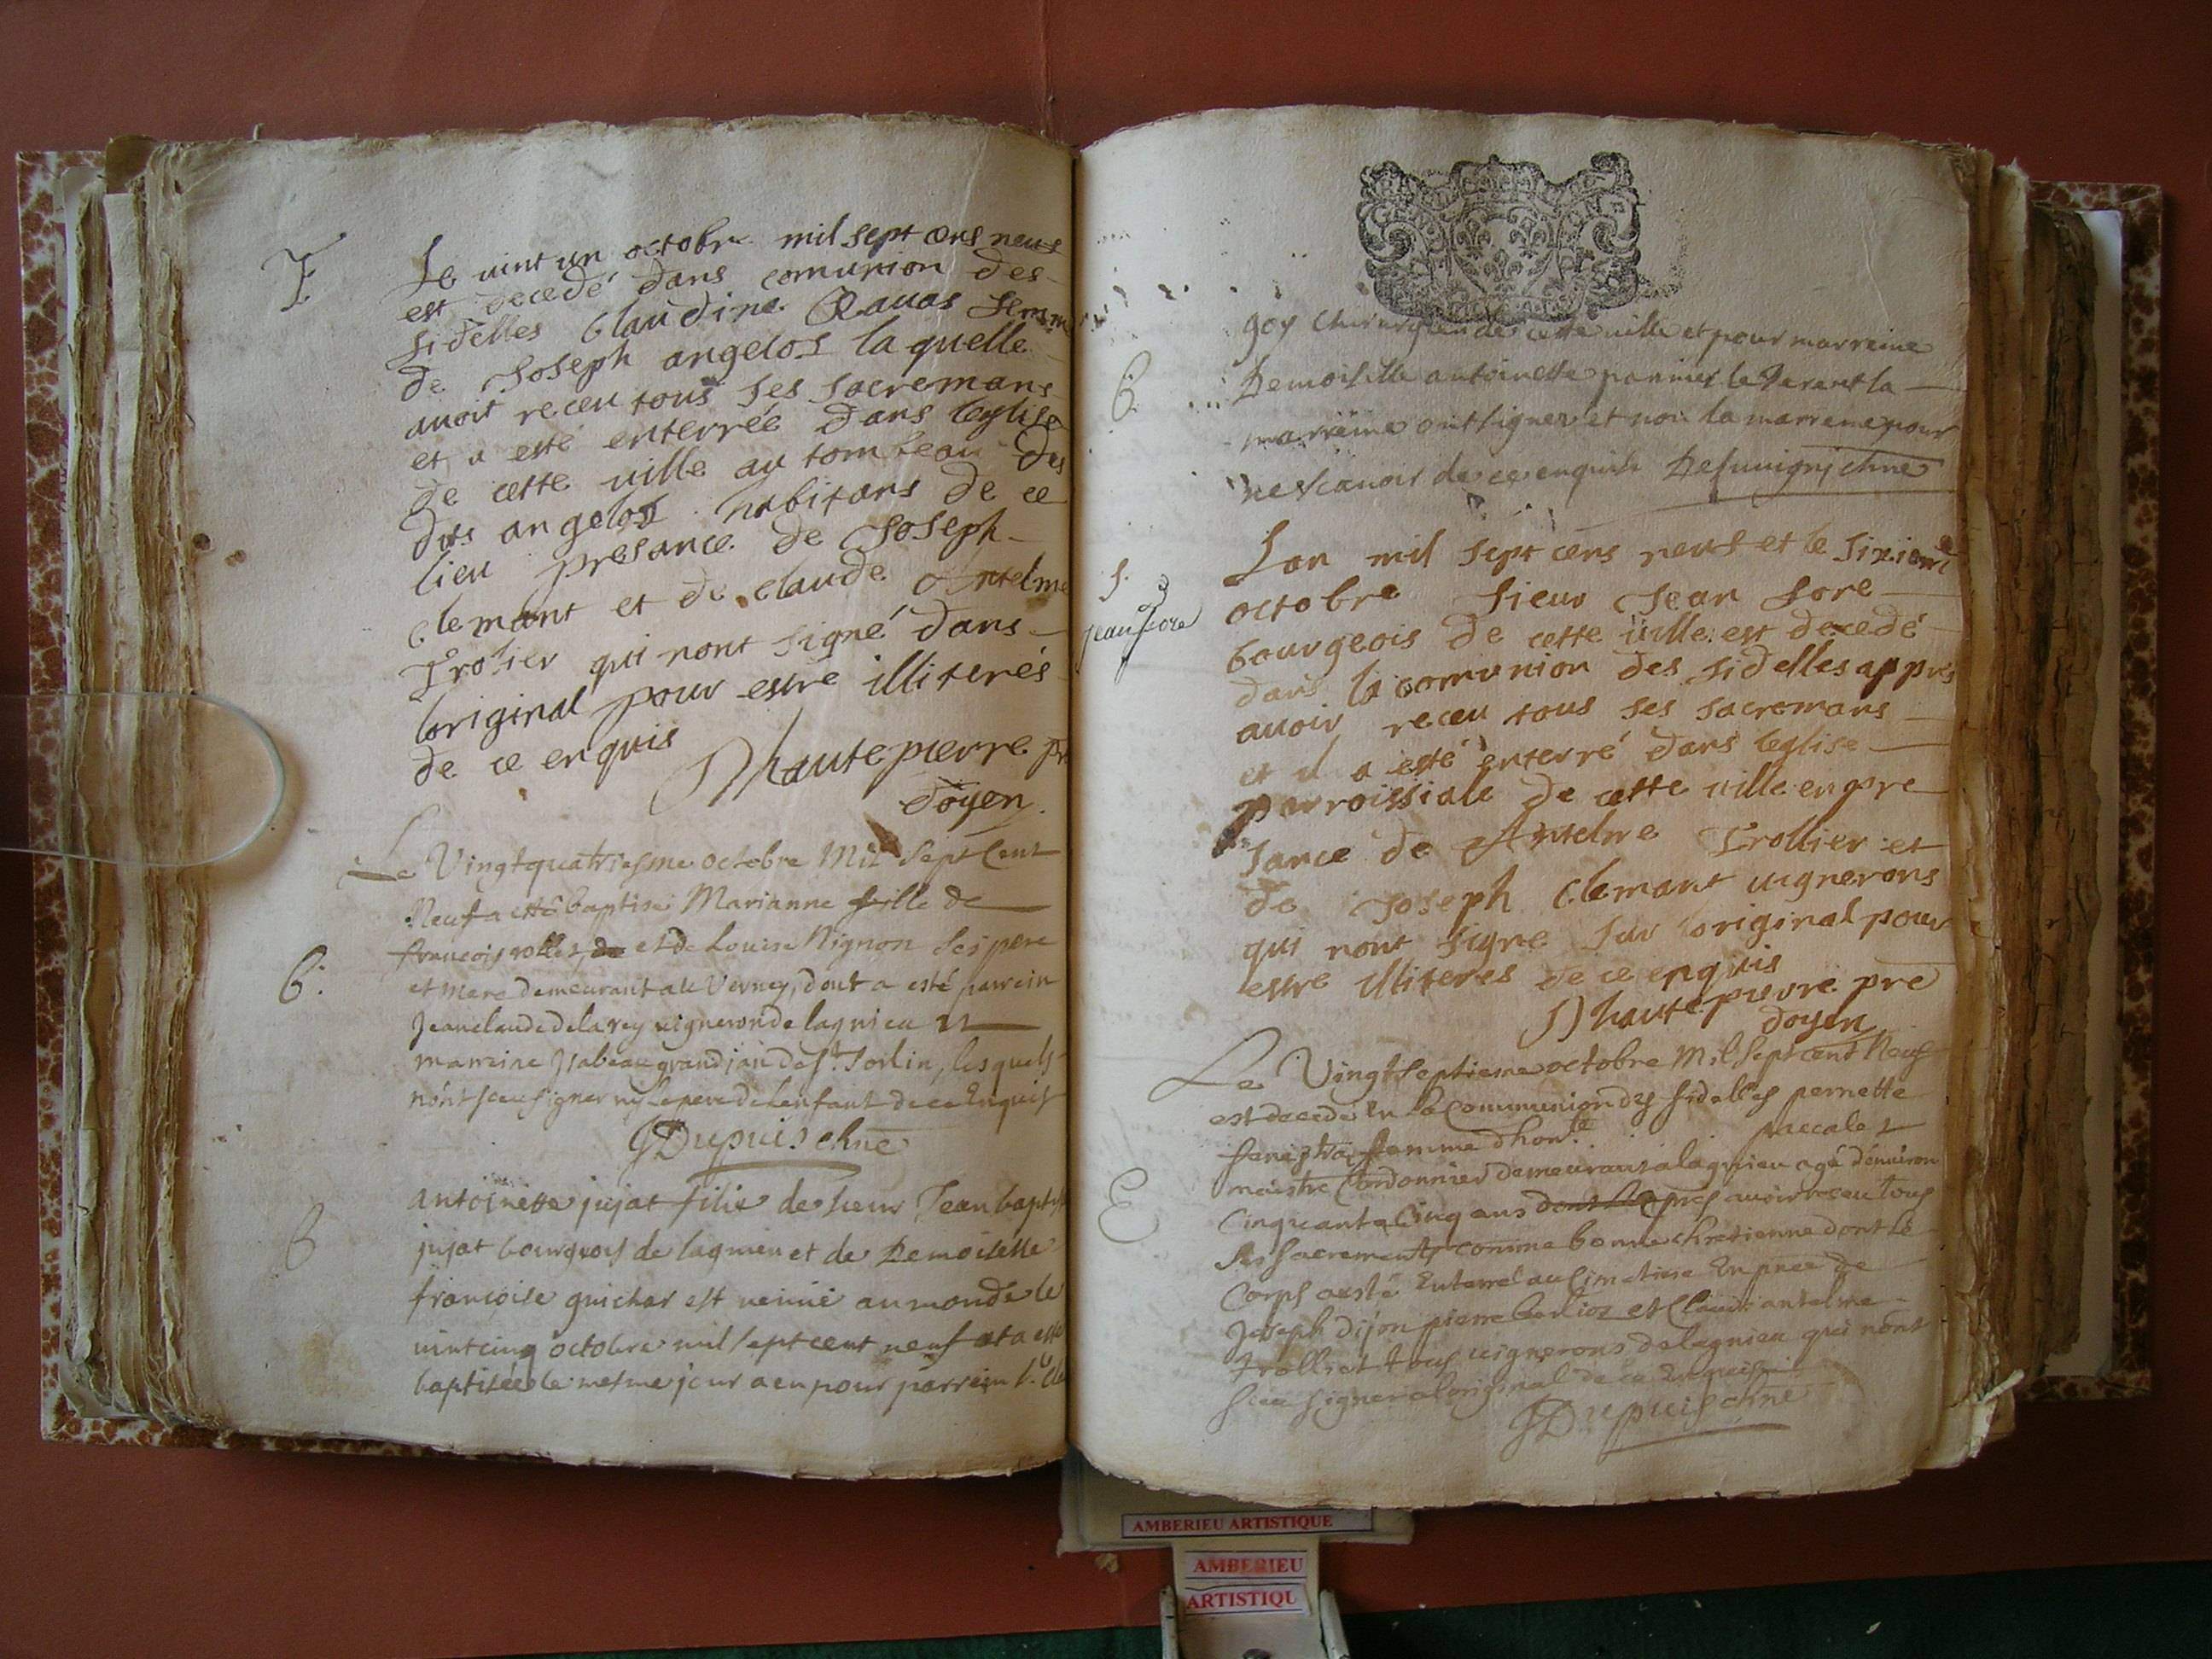 F
Le vint un octobre mil sept cens neuf
est decedé dans comunion des
fidelles Claudine Rauas femme
de Joseph angelot laquelle
auoit receu tous ses sacremans
et a esté enterrée dans leglise
de cette uille au tombeau des
dits angelot habitans de ce
lieu presance de Joseph
clemant et de claude Antelme
Trolier qui nont signé dans
loriginal pour estre illiterés
de ce enquis
Dhautepierre pre
doyen.
Le Vingtquatriesme octobre Mil Sept Cent
Neuf a esté baptisé Marianne fille de
francois rollet, et de Louise Nignon ses pere
B.
et Mere demeurant au Verney, dont a esté parrein
Jeanclaude delarey uigneron de lagnieu et
marreine Isabeau grandjan de st. Sorlin, lesquels
nont sceu signer ny le pere de lenfant de ce Enquis
GDupuis chne
B
antoinette jujat filie de sieur Jean baptiste
jujat bourgeois de lagnieu et de Demoiselle
francoise guichar est venue au monde le
uintcinq octobre mil sept cent neuf et a esté
baptisée le mesme jour a eu pour parrein
goy Chirurgien de cette uille et pour marreine
B.
Demoiselle antoinette la
marreine ont signer et non la marreine pour
ne scauoir de ce enquis chne
Lan mil sept cens neuf et le sixieme
S.
jean fore
octobre sieur Jean fore
bourgeois de cette uille est decedé
dans la comunion des fidelles appres
auoir receu tous ses sacremans
et il a esté enterré dans leglise
parroissiale de cette uille en pre
sance de Antelme Trollier et
de Joseph Clemant uignerons
qui nont signe sur loriginal pour
estre illiteres de ce enquis
Dhautepierre pre
doyen
Le Vingtseptiesme octobre Mil Sept cent Neuf
est decedé En la Communion des fidelles pernette
femme dhon.le paccalet
maistre Cordonnier demeurant a lagnieu agé denuiron
E
Cinquante Cinq ans apres auoir receu tous
ses sacrements comme bonne chretienne dont le
Corps a esté Enterré au Cimetiere En pnce de
Joseph dijon pierre barlioz et Claude antelme
trolliet tous uignerons de lagnieu qui nont
sceu signer a loriginal de ce Enquis
GDupuis chne
AMBERIEU ARTISTIQUE
AMBERIEU
ARTISTIQU